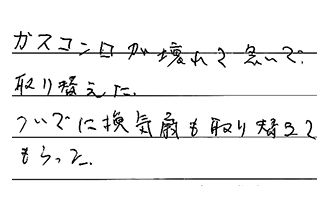 ガスコンロが壊れて急いで
取り替えた.
ついでに換気扇も取り替えて
もらった.